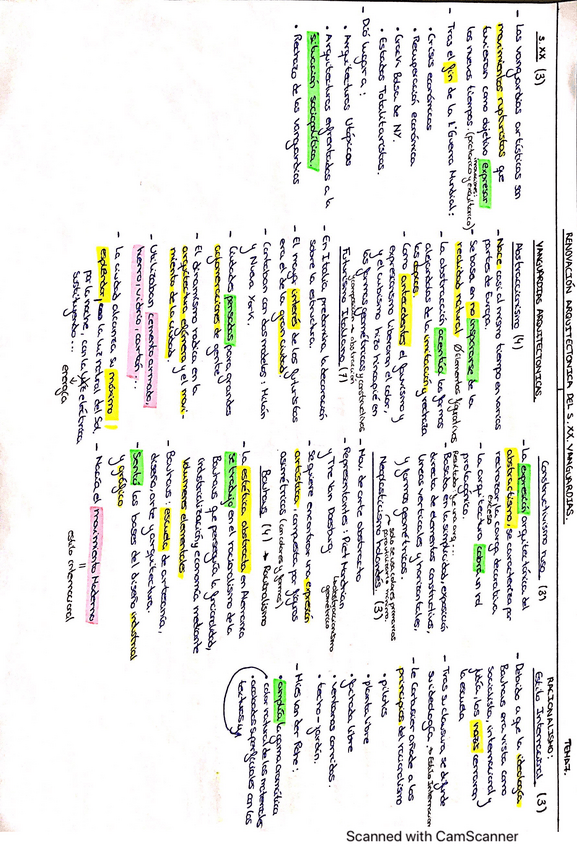 RENOVACIÓN ARQUITECTÓNICA DEL S.XX, VANGUARDIAS. TEMA 7.
S.XX (3)
- Las vanguardias artísticas son
movimientos rupturistas que
tuvieron como objetivo expresar
los nuevos tiempos.
- Tras el fin de la 1ª Guerra Mundial:
• Crisis económicas
• Recuperación económica
• Crack Bolsa de NY.
• Estados Totalitaristas.
- Dió lugar a:
• Arquitecturas Utópicas
• Arquitecturas enfrentadas a la
situación sociopolítica
• Rechazo de las vanguardias
VANGUARDIAS ARQUITECTÓNICAS.
Abstraccionismo (4)
- Nace casi al mismo tiempo en varias
partes de Europa.
- Se basa en no inspirarse de la
realidad natural
- La abstracción acentúa las formas
alejandolas de la imitación y rechaza
las
- Como antecedentes el fauvismo y
expresionismo liberaron el color,
y el cubismo hizo hincapié en
las formas geométricas
Futurismo Italiano (7)
- En Italia, predomina la decoración
sobre la estructura.
- El mayor interés de los futuristas
era el de la gran ciudad.
- Contaban con dos modelos: Milán
y Nueva York.
- Ciudades pensadas para grandes
aglomeraciones de gente
- El dinamismo radica en la
arquitectura efímera y el movi-
miento de la ciudad.
- Utilizaban cemento armado,
hierro, vidrio, cartón...
- La ciudad alcanza su máximo
esplendor, la luz natural del Sol
por la noche, con la luz eléctrica
sustituyendo...
energía
Constructivismo ruso (3)
- La expresión arquitectónica del
abstractismo, se caracteriza por
reivindicar la carga decorativa.
- La arquitectura cobra un rol
protagónico.
- Basada en la simplicidad, exposición
directa de elementos constructivos,
líneas verticales y horizontales,
y formas geométricas.
Neoplasticismo holandés (3)
- Mov. de arte abstracto
- Representantes: Piet Mondrian
y Theo Van Doesburg
- Se quiere encontrar una expresión
artística, compuesta por figuras
asimétricas (con colores y formas)
Bauhaus (4) → Racionalismo
- La estética abstracta en Alemania
se trabajó en el racionalismo de la
Bauhaus que perseguía la funcionalidad,
industrialización, economía mediante
volúmenes elementales
- Bauhaus: escuela de artesanía,
diseño, arte y arquitectura.
- Sentó las bases del diseño industrial
y gráfico
- Nacía el movimiento Moderno
=
estilo internacional
RACIONALISMO:
Estilo Internacional (3)
- Debido a que la ideología
Bauhaus era vista como
socialista, internacional y
judía, los nazis cerraron
la escuela
- Tras su clausura, se difunde
su ideología,
- Le Corbusier añade a los
principios del racionalismo
• pilotes
• planta libre
• fachada libre
• ventanas corridas
• techo-jardín.
- Mies Van der Rohe:
• amplía la gama cromática
color natural de los materiales
• acabados superficiales con las
texturas
Scanned with CamScanner